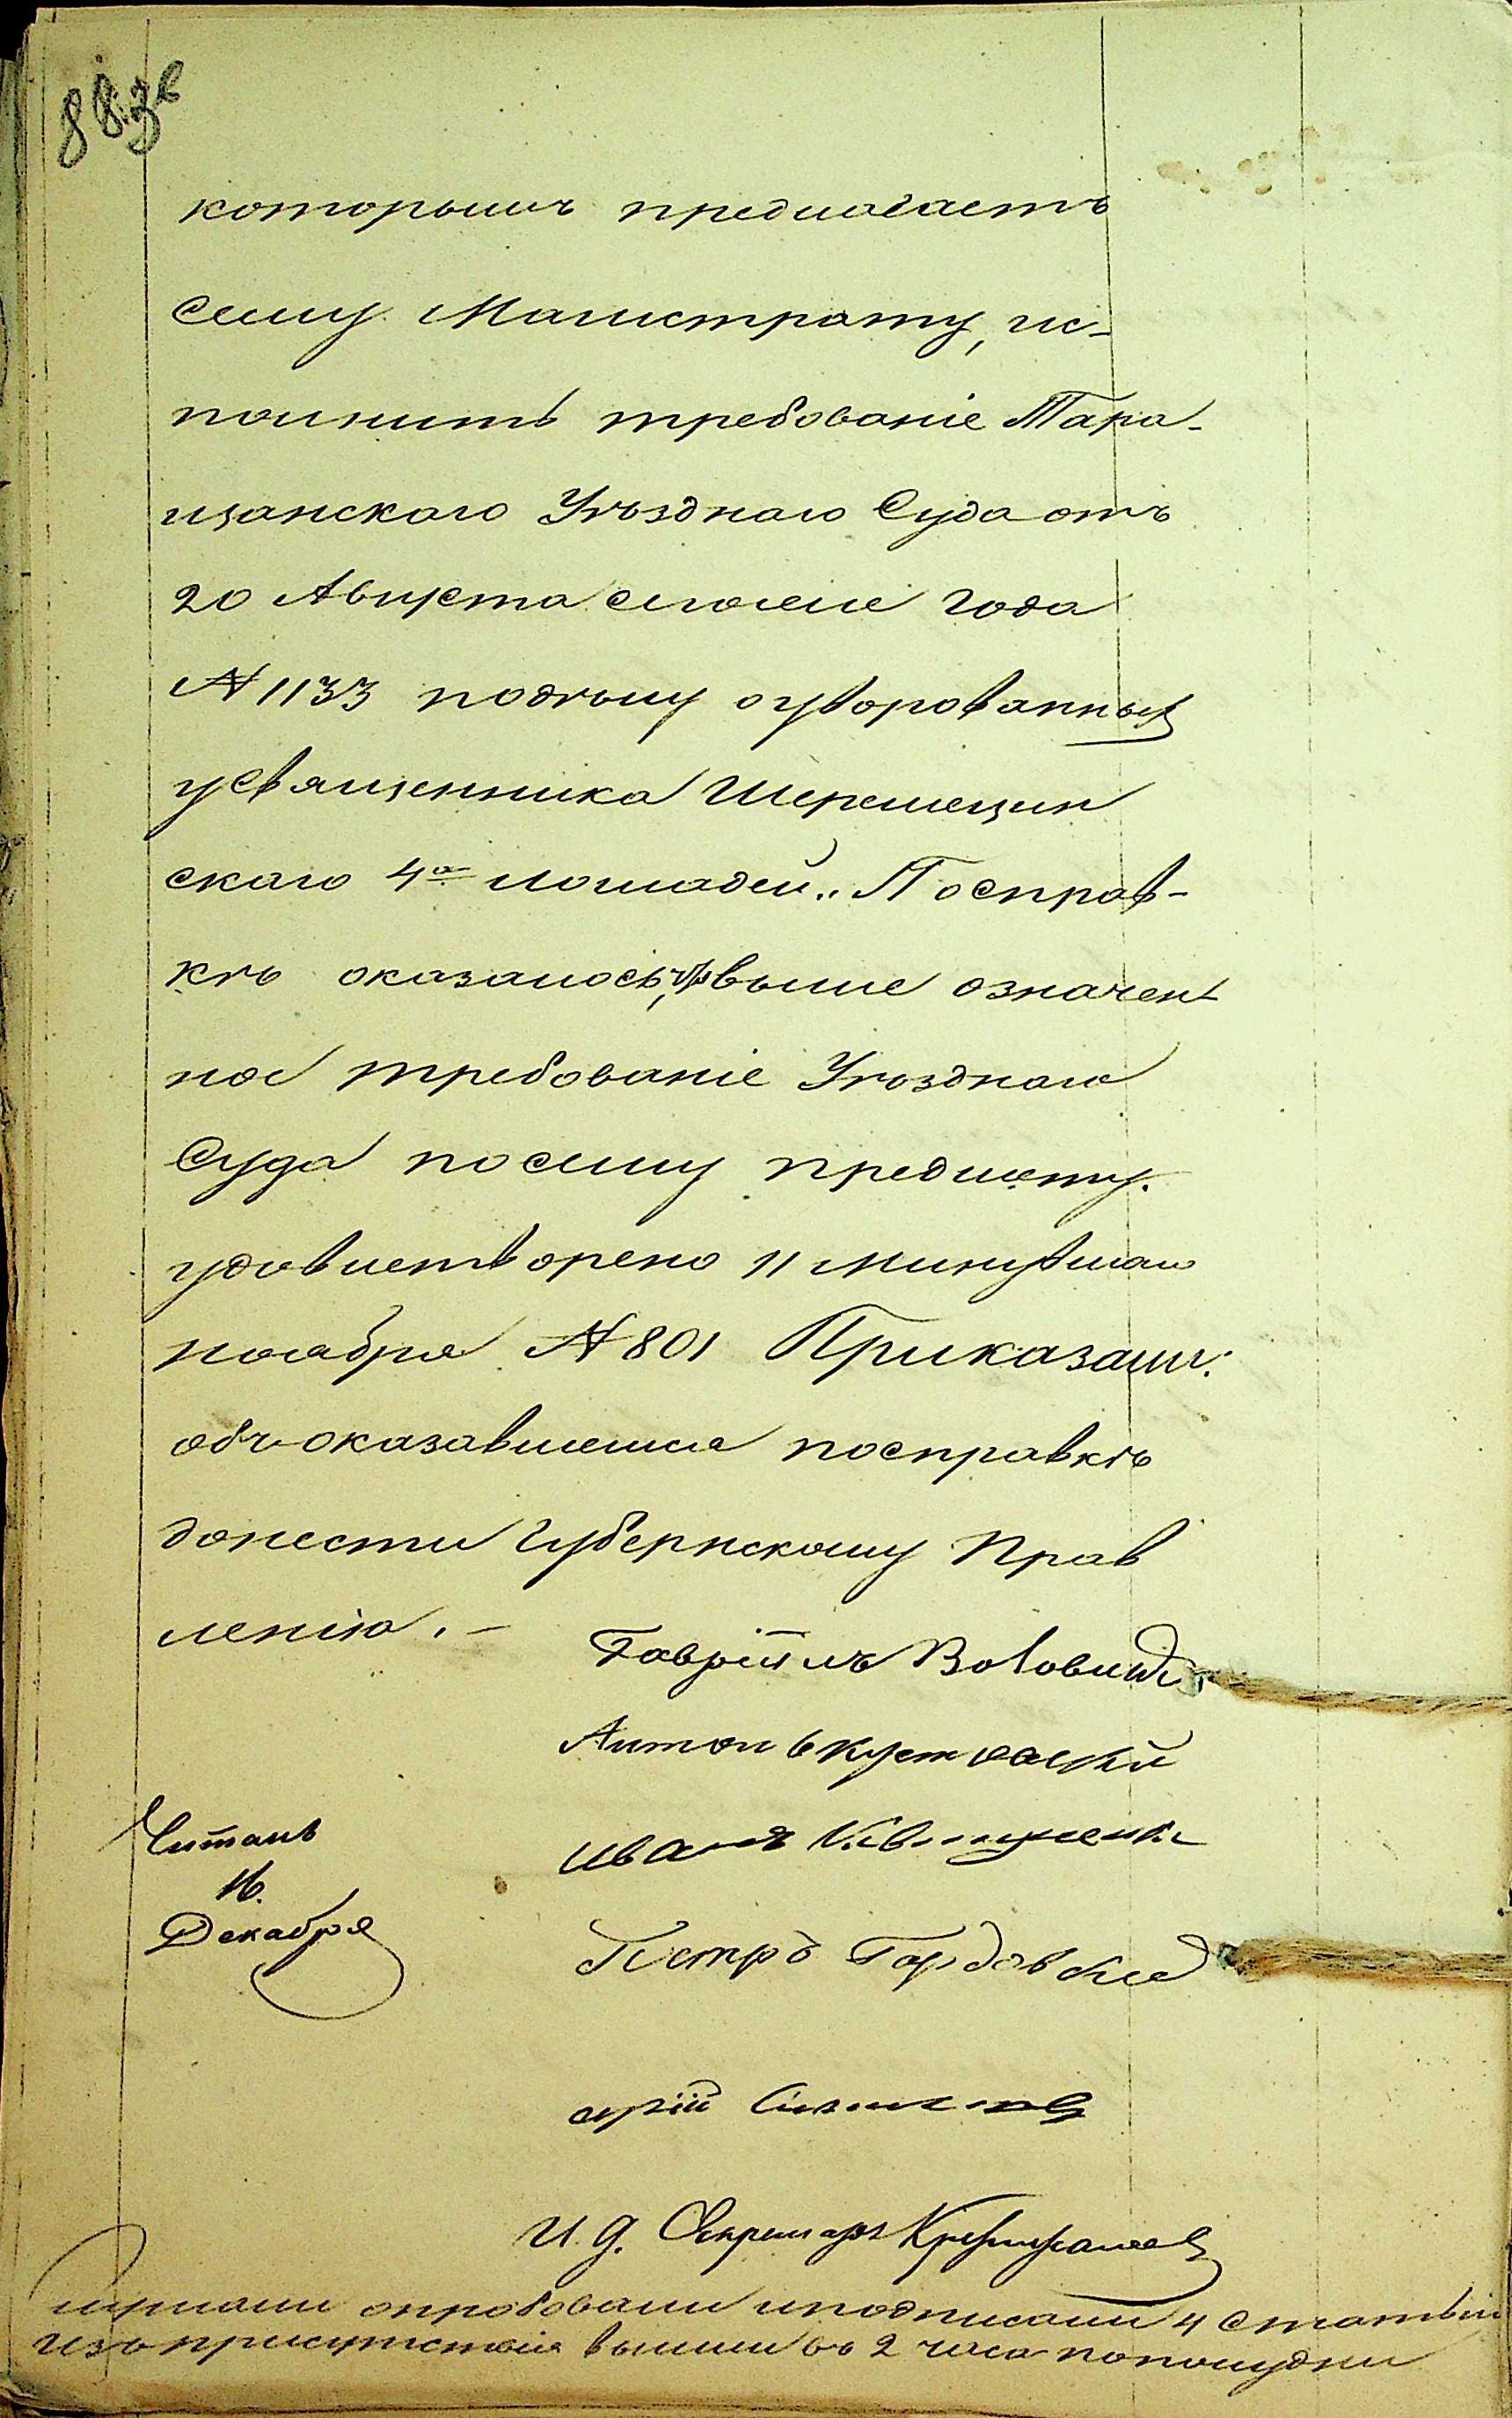 883
которымъ предлагаетъ
сему Магистрату, ис-
полнить требованіе Тара-
щанскаго Уѣзднаго Суда отъ
20 Августа сего года
№ 1133 подѣлу о уворованныхъ
усвященника Шеремецин
скаго 4х лошадей. Посправ-
кѣ оказалось, что выше означен-
ное требованіе Уѣзднаго
Суда посему предмету
удовлетворено 11 минувшаго
ноября № 801 Приказали:
объоказавшемся посправкѣ
донести Губернскому Прав
ленію. –
Гавріилъ
Антонъ
Читалъ
Иванъ
16.
Декабря
Петръ
И. д. Секретаря
слушали опробовали иподписали 4 статьи
изъ присутствія вышли въ 2 часа пополудни